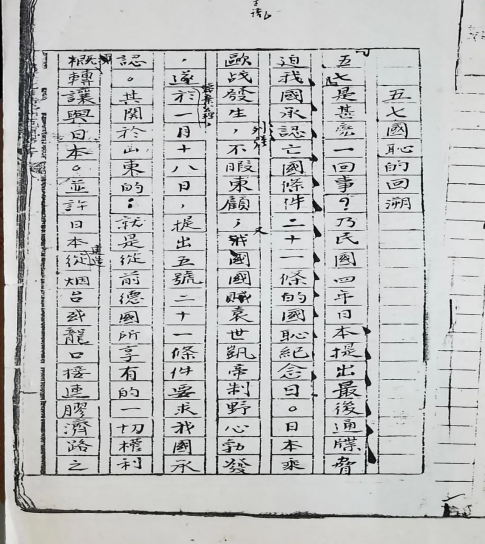 五七國恥的回溯
五七是甚麽一回事？乃民國四年日本提出最後通牒脅
迫我國承認亡國條件二十一條的國恥紀念日。日本乘
歐战發生，不暇東顧，又我國國賊袁世凱帝制野心勃發
，遂於一月十八日，提出五號二十一條件要求我國承
認。其關於山東的：就是從前德國所享有的一切權利
概轉讓與日本。並許日本建造從烟台或龍口接連膠濟路之